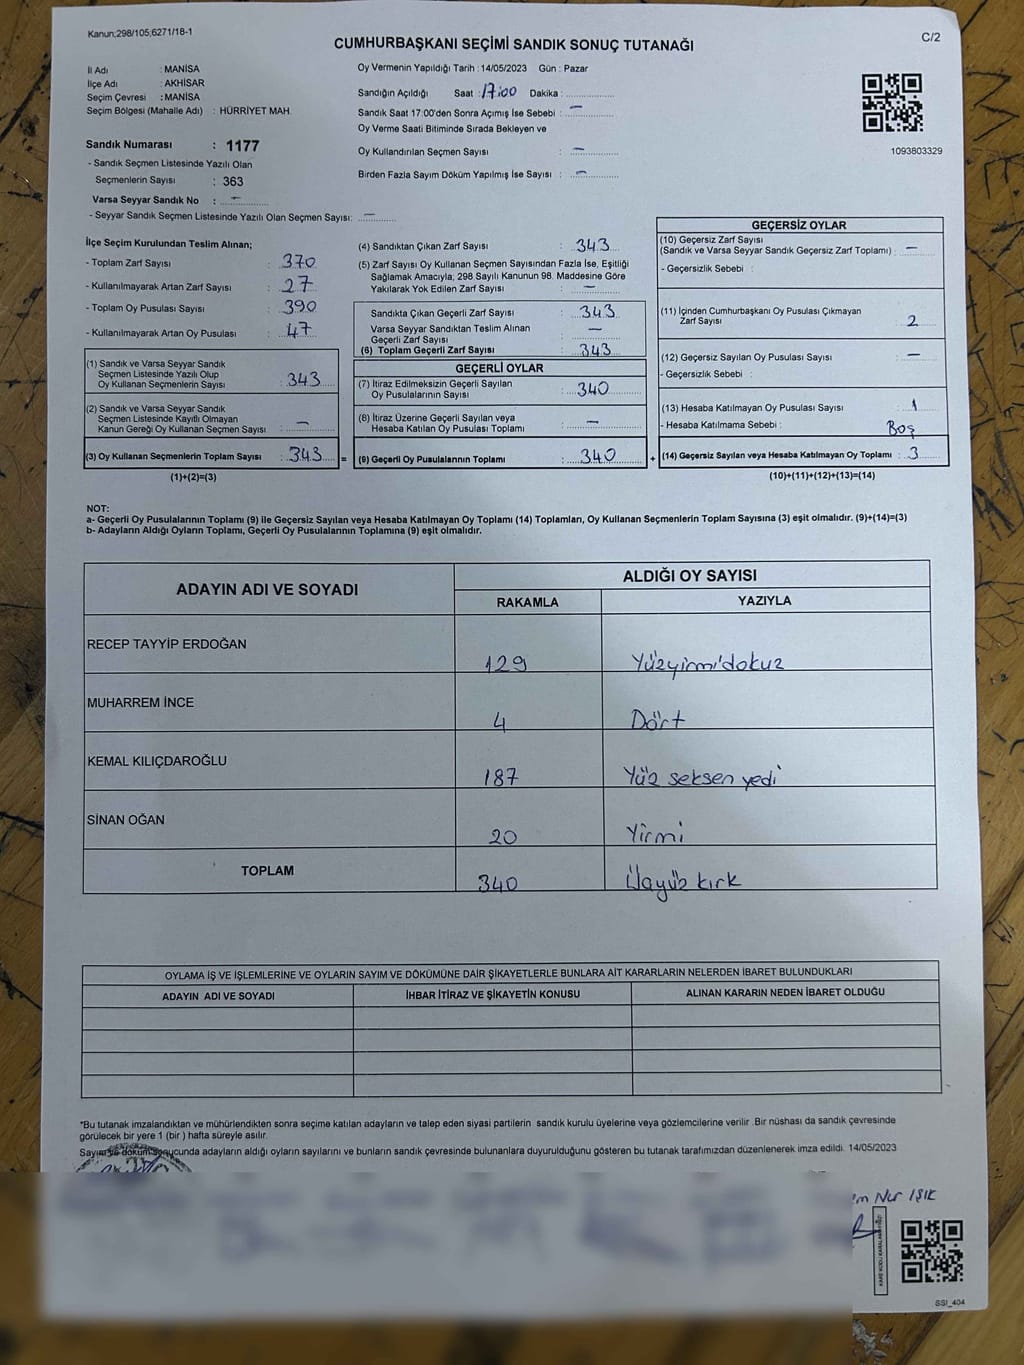 Kanun;298/105;6271/18-1
C/2
CUMHURBAŞKANI SEÇİMİ SANDIK SONUÇ TUTANAĞI
İl Adı : MANİSA
İlçe Adı : AKHİSAR
Seçim Çevresi : MANİSA
Seçim Bölgesi (Mahalle Adı) : HÜRRİYET MAH.
Sandık Numarası : 1177
- Sandık Seçmen Listesinde Yazılı Olan
Seçmenlerin Sayısı : 363
Varsa Seyyar Sandık No : —
- Seyyar Sandık Seçmen Listesinde Yazılı Olan Seçmen Sayısı: —
Oy Vermenin Yapıldığı Tarih : 14/05/2023 Gün : Pazar
Sandığın Açıldığı Saat : 17:00 Dakika :
Sandık Saat 17:00'den Sonra Açımış İse Sebebi : —
Oy Verme Saati Bitiminde Sırada Bekleyen ve
Oy Kullandırılan Seçmen Sayısı : —
Birden Fazla Sayım Döküm Yapılmış İse Sayısı : —
1093803329
İlçe Seçim Kurulundan Teslim Alınan;
- Toplam Zarf Sayısı : 370
- Kullanılmayarak Artan Zarf Sayısı : 27
- Toplam Oy Pusulası Sayısı : 390
- Kullanılmayarak Artan Oy Pusulası : 47
(1) Sandık ve Varsa Seyyar Sandık
Seçmen Listesinde Yazılı Olup
Oy Kullanan Seçmenlerin Sayısı : 343
(2) Sandık ve Varsa Seyyar Sandık
Seçmen Listesinde Kayıtlı Olmayan
Kanun Gereği Oy Kullanan Seçmen Sayısı : —
(3) Oy Kullanan Seçmenlerin Toplam Sayısı : 343 =
(1)+(2)=(3)
(4) Sandıktan Çıkan Zarf Sayısı : 343
(5) Zarf Sayısı Oy Kullanan Seçmen Sayısından Fazla İse, Eşitliği
Sağlamak Amacıyla, 298 Sayılı Kanunun 98. Maddesine Göre
Yakılarak Yok Edilen Zarf Sayısı : —
Sandıkta Çıkan Geçerli Zarf Sayısı : 343
Varsa Seyyar Sandıktan Teslim Alınan
Geçerli Zarf Sayısı : —
(6) Toplam Geçerli Zarf Sayısı : 343
GEÇERLİ OYLAR
(7) İtiraz Edilmeksizin Geçerli Sayılan
Oy Pusulalarının Sayısı : 340
(8) İtiraz Üzerine Geçerli Sayılan veya
Hesaba Katılan Oy Pusulası Toplamı : —
(9) Geçerli Oy Pusulalarının Toplamı : 340 +
GEÇERSİZ OYLAR
(10) Geçersiz Zarf Sayısı
(Sandık ve Varsa Seyyar Sandık Geçersiz Zarf Toplamı) : —
- Geçersizlik Sebebi :
(11) İçinden Cumhurbaşkanı Oy Pusulası Çıkmayan
Zarf Sayısı : 2
(12) Geçersiz Sayılan Oy Pusulası Sayısı : —
- Geçersizlik Sebebi :
(13) Hesaba Katılmayan Oy Pusulası Sayısı : 1
- Hesaba Katılmama Sebebi : Boş
(14) Geçersiz Sayılan veya Hesaba Katılmayan Oy Toplamı : 3
(10)+(11)+(12)+(13)=(14)
NOT:
a- Geçerli Oy Pusulalarının Toplamı (9) ile Geçersiz Sayılan veya Hesaba Katılmayan Oy Toplamı (14) Toplamları, Oy Kullanan Seçmenlerin Toplam Sayısına (3) eşit olmalıdır. (9)+(14)=(3)
b- Adayların Aldığı Oyların Toplamı, Geçerli Oy Pusulalarının Toplamına (9) eşit olmalıdır.
ADAYIN ADI VE SOYADI ALDIĞI OY SAYISI
RAKAMLA YAZIYLA
RECEP TAYYİP ERDOĞAN 129 Yüzyirmidokuz
MUHARREM İNCE 4 Dört
KEMAL KILIÇDAROĞLU 187 Yüz seksen yedi
SİNAN OĞAN 20 Yirmi
TOPLAM 340 Üçyüz kırk
OYLAMA İŞ VE İŞLEMLERİNE VE OYLARIN SAYIM VE DÖKÜMÜNE DAİR ŞİKAYETLERLE BUNLARA AİT KARARLARIN NELERDEN İBARET BULUNDUKLARI
ADAYIN ADI VE SOYADI İHBAR İTİRAZ VE ŞİKAYETİN KONUSU ALINAN KARARIN NEDEN İBARET OLDUĞU
*Bu tutanak imzalandıktan ve mühürlendikten sonra seçime katılan adayların ve talep eden siyasi partilerin sandık kurulu üyelerine veya gözlemcilerine verilir. Bir nüshası da sandık çevresinde
görülecek bir yere 1 (bir ) hafta süreyle asılır.
Sayım ve döküm sonucunda adayların aldığı oyların sayılarını ve bunların sandık çevresinde bulunanlara duyurulduğunu gösteren bu tutanak tarafımızdan düzenlenerek imza edildi. 14/05/2023
Nur IŞIK
SSI_404